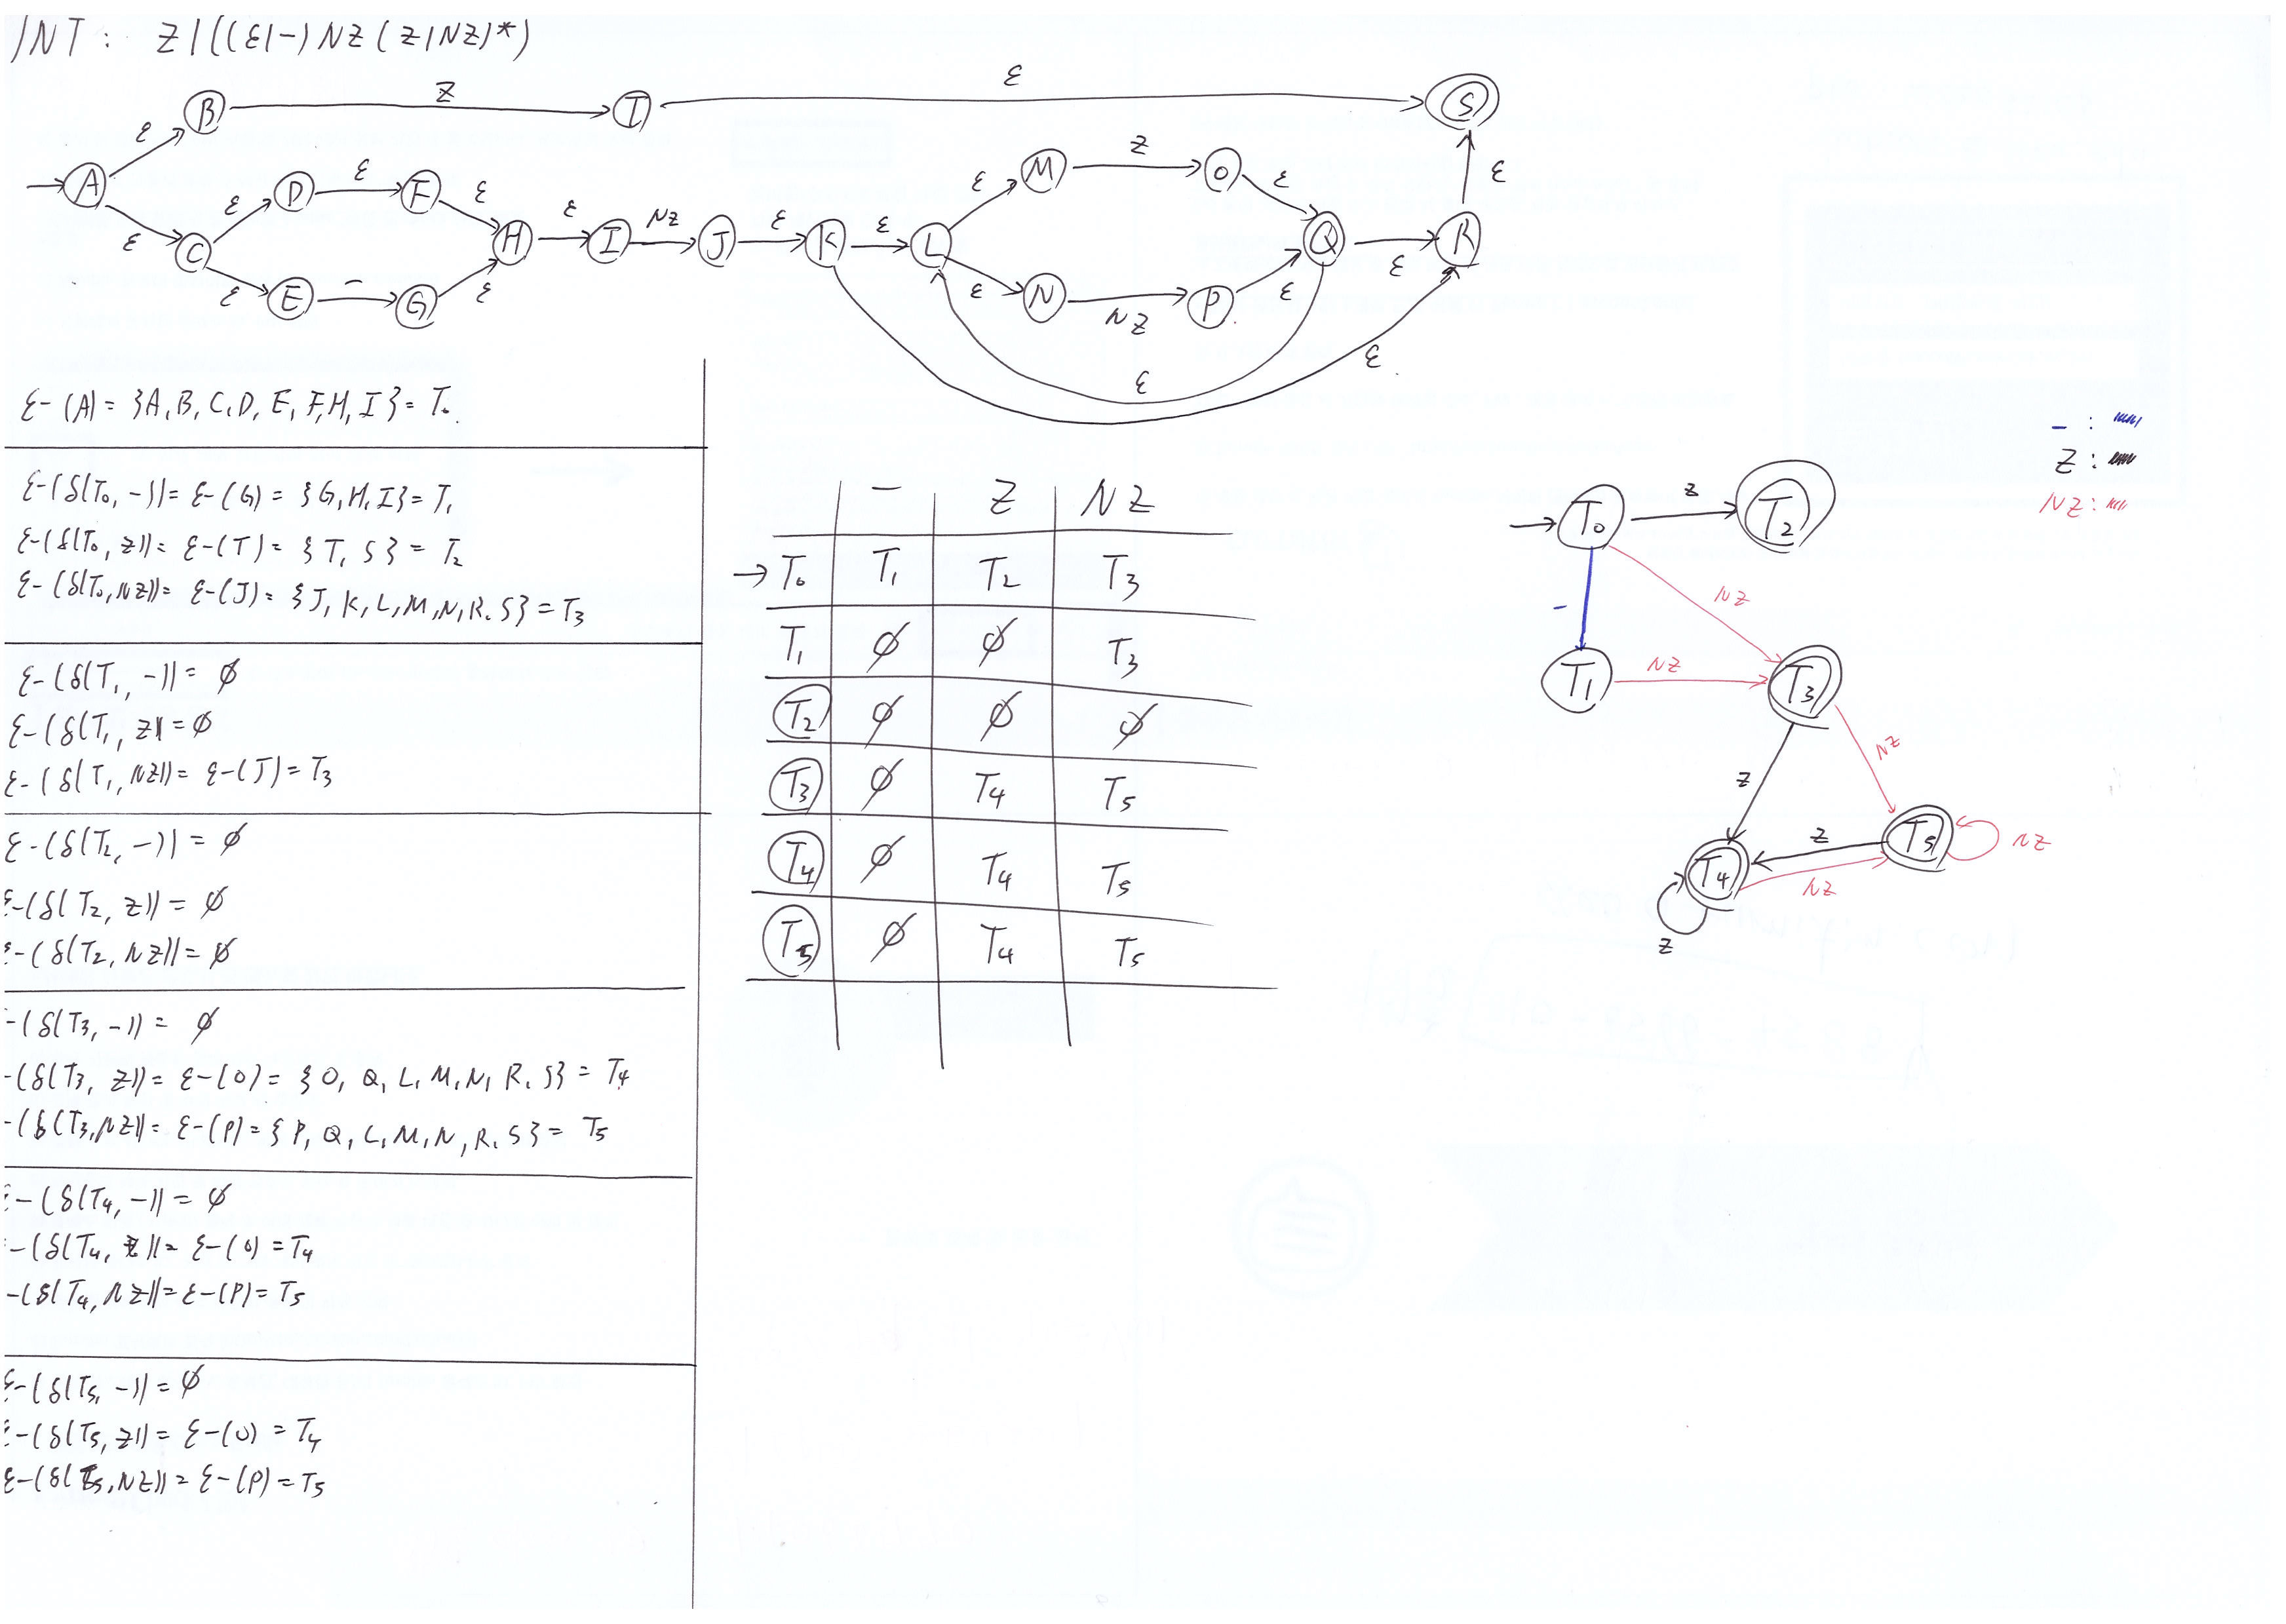 INT: Z|((ε|-)NZ(Z|NZ)*)
B Z I ε S
ε
A ε D ε F ε H ε I NZ J ε K ε L ε M Z O ε Q ε R ε
ε C ε E - G ε
ε N NZ P ε
ε
ε
ε-(A)= {A, B, C, D, E, F, H, I} = T₀
ε-(δ(T₀, -))= ε-(G) = {G, H, I} = T₁
ε-(δ(T₀, Z))= ε-(T) = {T, S} = T₂
ε-(δ(T₀, NZ))= ε-(J) = {J, K, L, M, N, R, S} = T₃
ε-(δ(T₁, -))= ∅
ε-(δ(T₁, Z))= ∅
ε-(δ(T₁, NZ))= ε-(J) = T₃
ε-(δ(T₂, -)) = ∅
ε-(δ(T₂, Z)) = ∅
ε-(δ(T₂, NZ)) = ∅
-(δ(T₃, -)) = ∅
-(δ(T₃, Z))= ε-(O) = {O, Q, L, M, N, R, S} = T₄
-(δ(T₃, NZ))= ε-(P) = {P, Q, L, M, N, R, S} = T₅
ε-(δ(T₄, -)) = ∅
-(δ(T₄, Z))= ε-(O) = T₄
-(δ(T₄, NZ))= ε-(P) = T₅
ε-(δ(T₅, -))= ∅
ε-(δ(T₅, Z))= ε-(O) = T₄
ε-(δ(T₅, NZ))= ε-(P) = T₅
- Z NZ
→T₀ T₁ T₂ T₃
T₁ ∅ ∅ T₃
T₂ ∅ ∅ ∅
T₃ ∅ T₄ T₅
T₄ ∅ T₄ T₅
T₅ ∅ T₄ T₅
- :
Z :
NZ :
T₀ Z T₂
- NZ
T₁ NZ T₃
Z NZ
T₄ Z T₅ NZ
NZ
Z